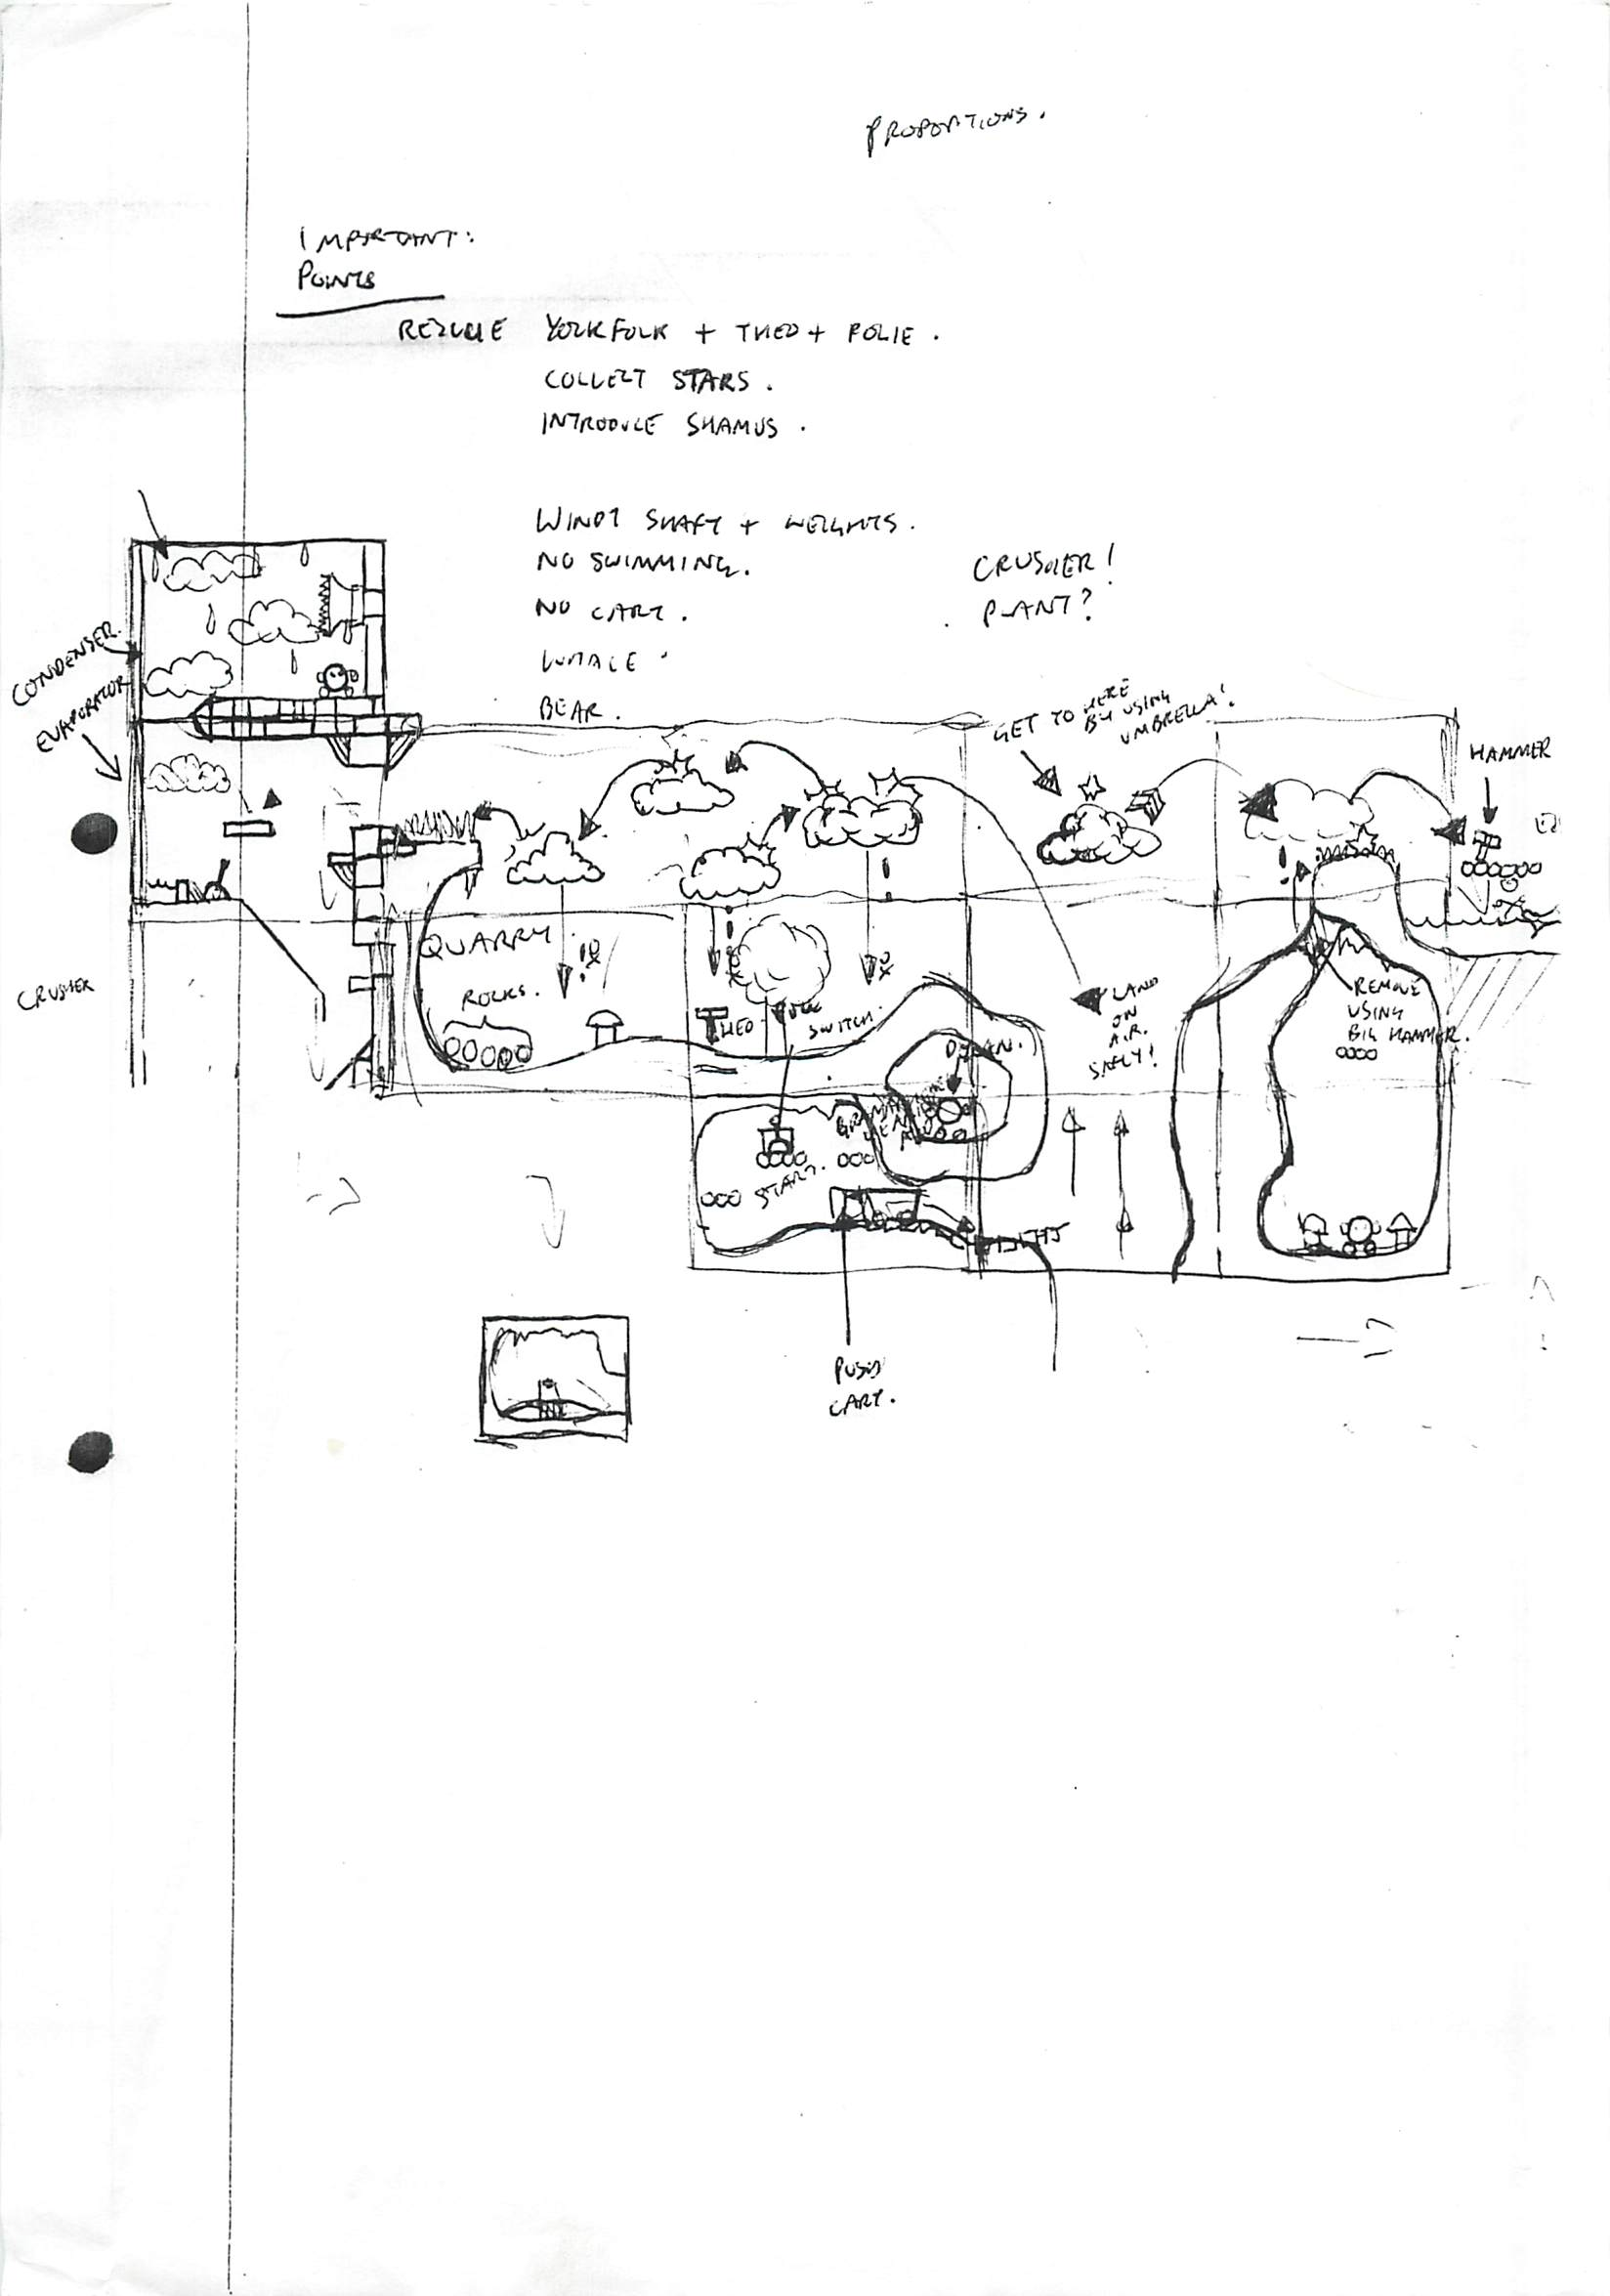 PROPORTIONS.
IMPORTANT:
POINTS
RESCUE YOLKFOLK + THEO + POLIE.
COLLECT STARS.
INTRODUCE SHAMUS.
WINDY SHAFT + WEIGHTS.
NO SWIMMING.
NO CART.
BEAR.
CRUSHER!
PLANT?
CONDENSER.
EVAPORATOR
CRUSHER
GET TO HERE
BY USING
UMBRELLA!
HAMMER
QUARRY.
ROCKS.
THEO
PULL
SWITCH.
DYLAN.
LAND
ON
A.R.
SAFELY!
REMOVE
USING
BIG HAMMER.
START.
PUSH
CART.